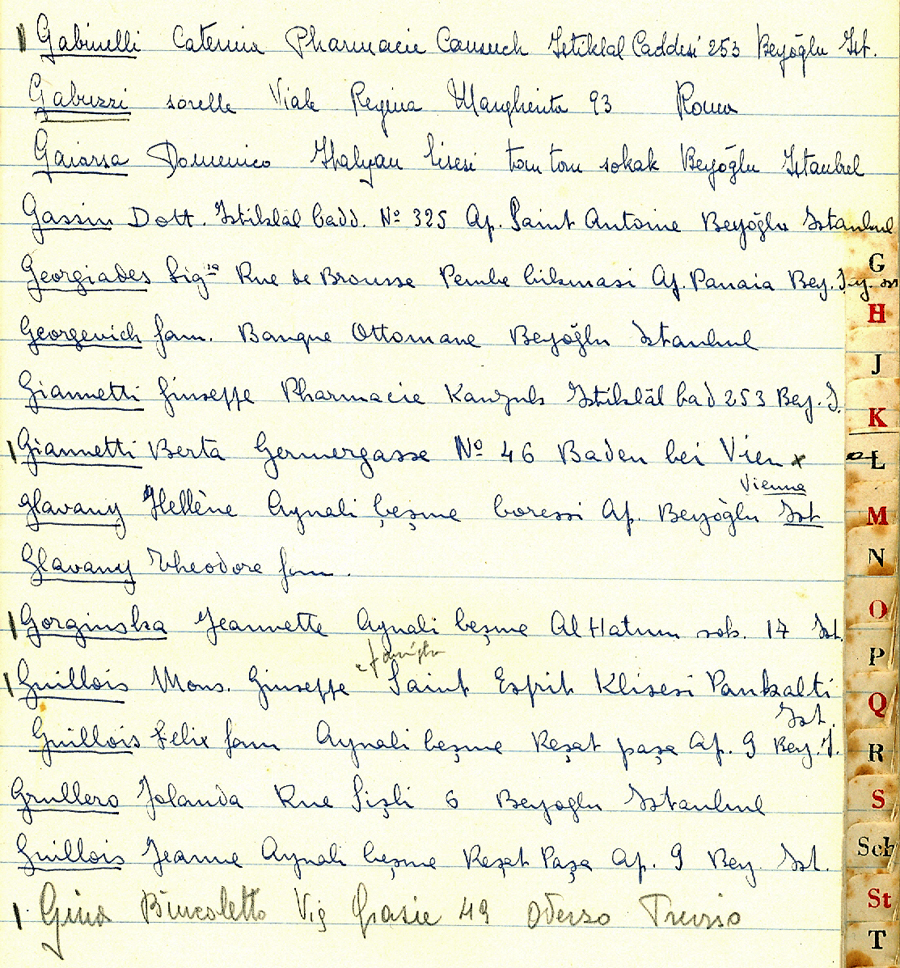 Gabinelli Caterina Pharmacie Canzuch Istiklal Caddesi 253 Beyoğlu Ist.
Gabuzzi sorelle Viale Regina Margherita 93 Roma
Gaiarsa Domenico Italyan lisesi tom tom sokak Beyoğlu Istanbul
Gassin Dott. Istiklâl Cadd. Nº 325 Ap. Saint Antoine Beyoğlu Istanbul
Georgiades Sigra Rue de Brousse Pembe Cikmasi Ap. Panaia Bey.
Georgevich fam. Banque Ottomane Beyoğlu Istanbul
Giannetti Giuseppe Pharmacie Kanzuk Istiklâl Cad 253 Bey. I.
Giannetti Berta Germergasse Nº 46 Baden bei Vien x
Vienna
Glavany Hellène Aynali Çeşme Ap. Beyoğlu Ist
Glavany Theodore fam.
Gorginska Jeannette Aynali Çeşme Al Hatun sok. 17 Ist.
e famiglia
Guillois Mons. Giuseppe Saint Esprit Klisesi Pankalti
Ist.
Guillois Felix fam Aynali Çeşme Reşat paşa Ap. 9 Bey. I.
Grullero Jolanda Rue Şişli 6 Beyoglu Istanbul
Guillois Jeanne Aynali Çeşme Reşat Paşa Ap. 9 Bey. Ist.
Gina Bincoletto Via Grasie 49 Oderzo Treviso
G
H
J
K
L
M
N
O
P
Q
R
S
Sch
St
T